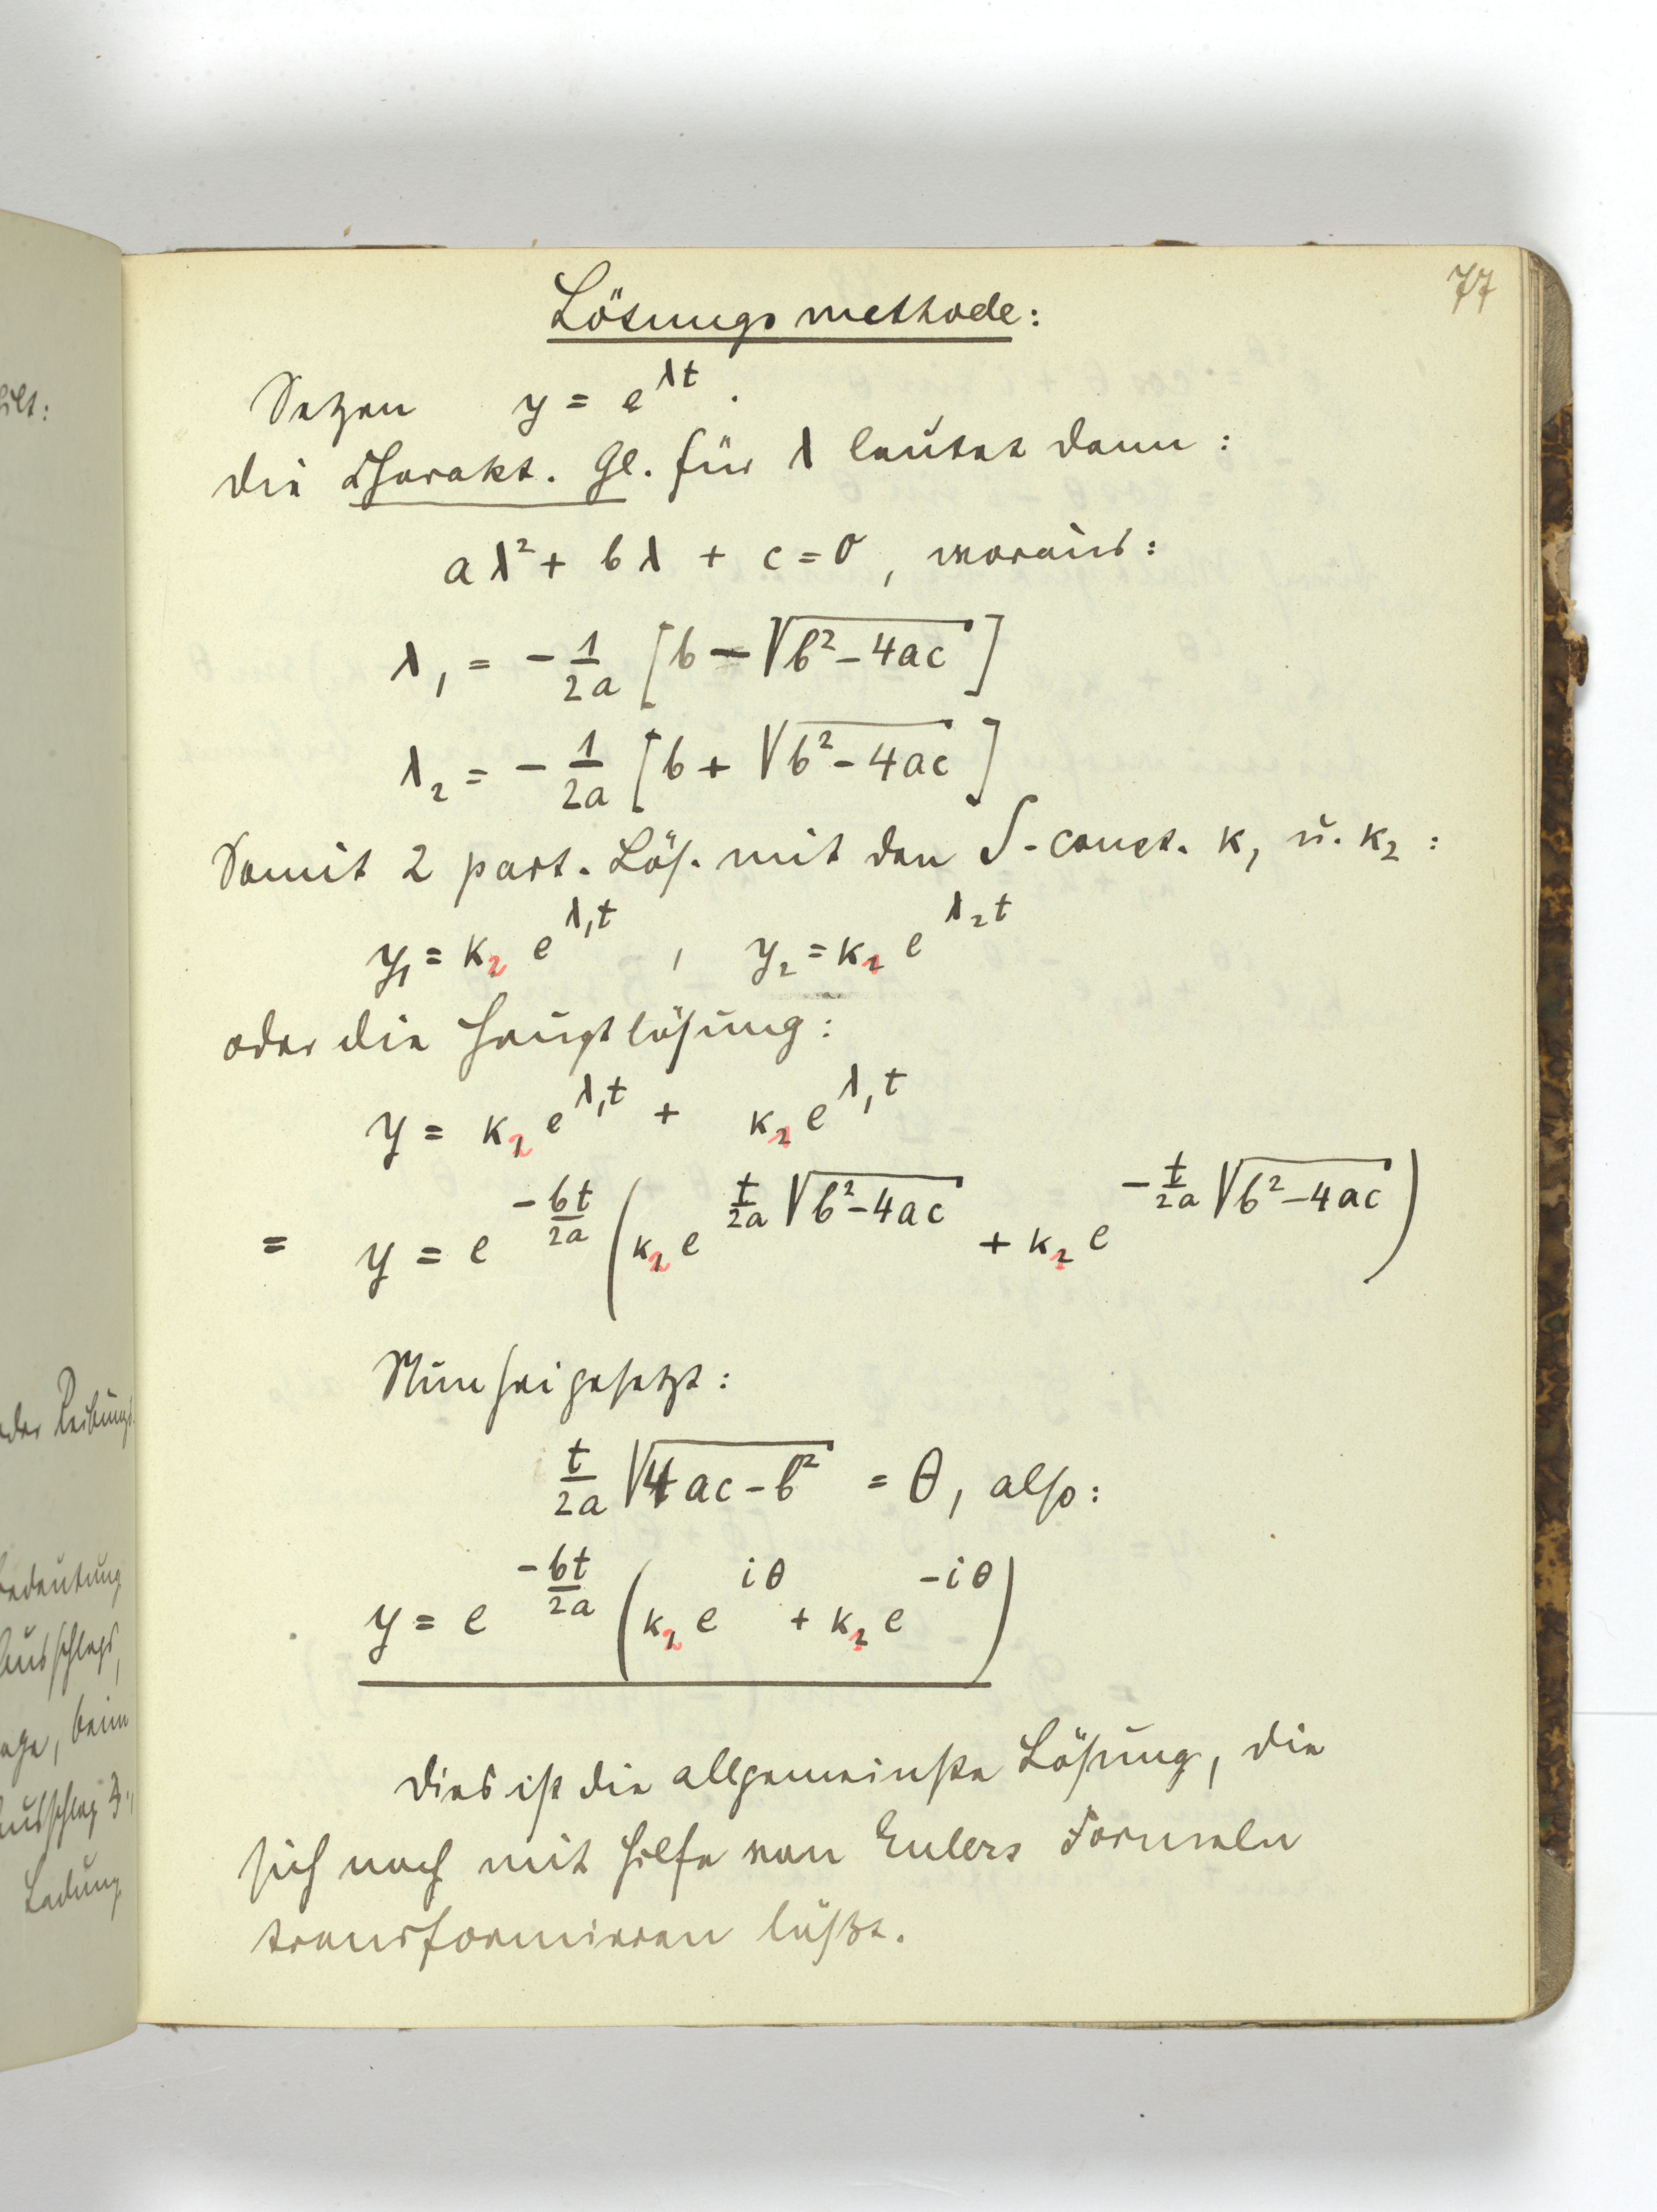 77
Lösungsmethode:
Setzen y = e^{λt}.
die Charakt. Gl. für λ lautet dann:
aλ² + bλ + c = 0, woraus:
λ₁ = -1/2a [b - √(b² - 4ac)]
λ₂ = -1/2a [b + √(b² - 4ac)]
Somit 2 part. Lös. mit den ∫-const. k₁ u. k₂:
y₁ = k₂ e^{λ₁t}, y₂ = k₁ e^{λ₂t}
oder die Hauptlösung:
y = k₂ e^{λ₁t} + k₁ e^{λ₁t}
= y = e^{-bt/2a} (k₂ e^{t/2a √(b²-4ac)} + k₁ e^{-t/2a √(b²-4ac)})
Nun sei gesetzt:
t/2a √(4ac - b²) = θ, also:
y = e^{-bt/2a} (k₂ e^{iθ} + k₁ e^{-iθ})
dies ist die allgemeinste Lösung, die
sich noch mit Hilfe von Eulers Formeln
transformieren läßt.
oder Reibungs
Bedeutung
Ausschlags,
beim
Ausschlag
Ladung